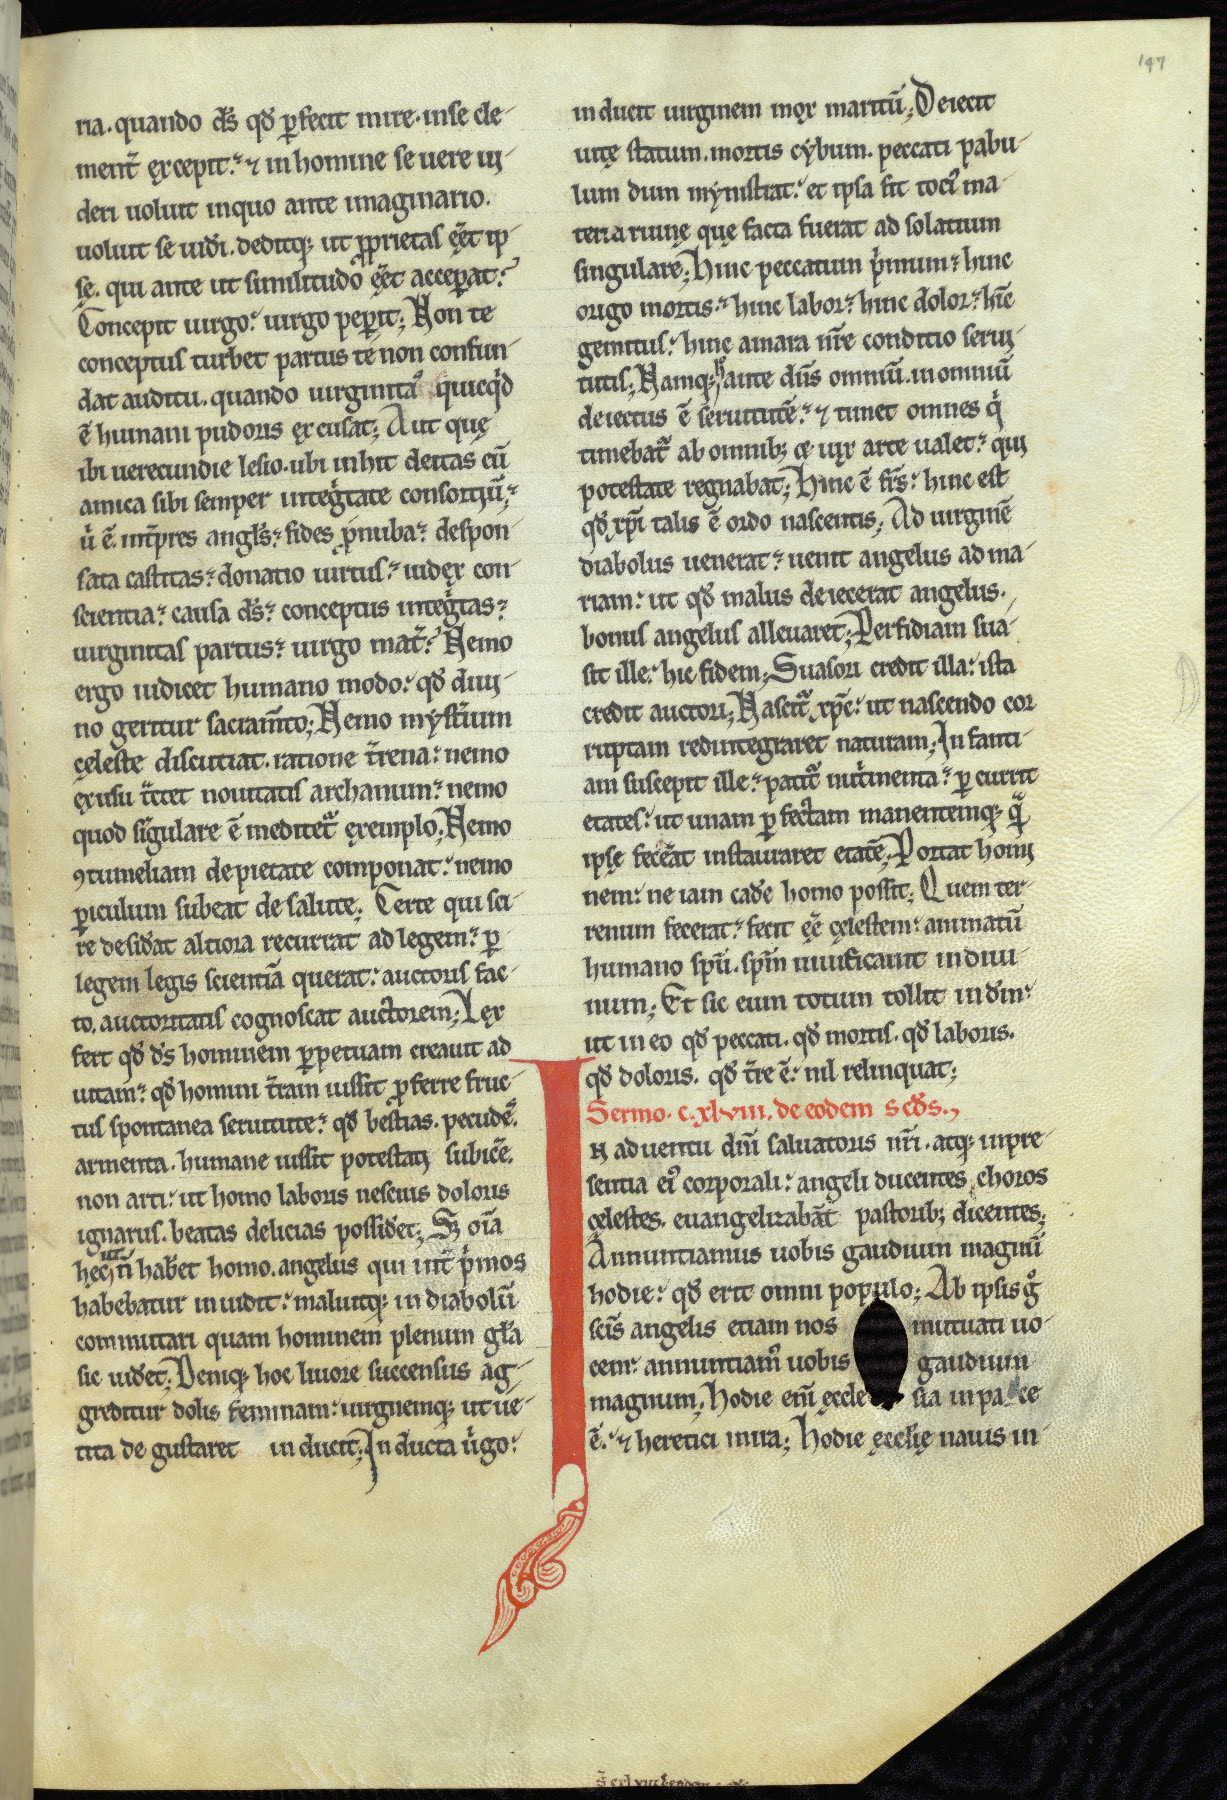 197
ria. quando ds̄ qđ ꝑfecit mire. in se cle-
ment̄ excepit.᷒ ⁊ in homine se uere ui-
deri uoluit in quo ante imaginario.
uoluit se uidi̅. deditq; ut ꝓprietas eēt ip-
sę. qui ante ut similitudo eēt acceꝑat?
Concepit uirgo: uirgo peꝑit; Non te
conceptus turbet partus te non confun-
dat auditu. quando uirginitaˢ quicqͥd
ē humani pudoris excusat; Aut quę
ibi uerecundie lesio. ubi inhit deitas cū
amica sibi semper integͥtate consortiū;
uͥ ē int̄pres angl̄s: fides ꝓnuba: despon
sata castitas: donatio uirtus: iudex con-
scientia: causa ds̄: conceptus integͥtas:
uirginitas partus: uirgo mat̄? Nemo
ergo iudicet humano modo: qđ diui-
no geritur sacram̄to; Nemo myst̄ium
cęleste discutiat. ratione t̄rena: nemo
ex usu t̄ctet nouitatis archanum: nemo
quod sīgulare ē meditet᷑ exemplo; Nemo
ꝯtumeliam de pietate componat: nemo
ꝑiculum subeat de salute; Certe qui sci-
re desid̄at altiora recurrat ad legem: ꝑ
legem legis scientiā querat: auctoris fac-
to. auctoritatis cognoscat auctorem; Lex
fert qđ ds̄ hominem ꝑpetuam creauit ad
uitam: qđ homini t̄ram iussit ꝓferre fruc-
tus spontanea seruitute: qđ bestias. pecudeˢ.
armenta. humane iussit potestati subicē.
non arti: ut homo laboris nescius doloris
ignarus. beatas delicias possidet; Sꝫ oīa
hęc ut n̄ hab̄et homo. angelus qui int̄ pͥmos
habebatur inuidit: maluitq; in diabolū
commutari quam hominem plenum gl̄a
sic uid̄et; Deniq; hoc liuore succensus ag-
greditur dolis feminam: uirginemq; ut ue-
tita de gustaret inducit; Inducta uͥgo:
inducit uirginem mox maritū; Deiecit
uitę statum. mortis cybum. peccati pabu-
lum dum mynistrat: et ipsa fit toci᷒ ma-
teria ruinę quę facta fuerat ad solatium
singulare; Hinc peccatum pͥmum: hinc
origo mortis: hinc labor: hinc dolor: hīc
gemitus: hinc amara nr̄e conditio serui-
tutis; Namq; hͦ ante dn̄s omniū. in omniū
deiectus ē seruitutē: ⁊ timet omnes qͥ
timebat᷑ ab omnibꝫ ę uix arte ualet: qui
potestate regnabat; Hinc ē fr̄s: hinc est
qđ xp̄i talis ē ordo nascentis; Ad uirginē
diabolus uenerat: uenit angelus ad ma-
riam: ut qđ malus deiecerat angelus.
bonus angelus alleuaret; Perfidiam sua-
sit ille: hic fidem; Suasori credit illa: ista
credit auctori; Nascit᷑ xp̄c: ut nascendo cor
ruptam redintegraret naturam; Infanti-
am suscepit ille: patit᷑ nutͥmenta: ꝑcurrit
etates: ut unam ꝑfectam manentemq; qᷓ
ipse feceͣt instauraret etatē; Portat homi
nem: ne iam cad̄e homo possit; Quem ter-
renum fecerat: fecit eē cęlestem: animatū
humano spū. spm̄ uiuificauit in diui-
num; Et sic eum totum tollit in dm̄:
ut in eo qđ peccati. qđ mortis. qđ laboris.
qđ doloris. qđ t̄re ē: nil relinquat;
Sermo. c.xlviii. de eodem scđs.
IN aduentu dn̄i saluatoris nr̄i. atq; in pre-
sentia ei᷒ corporali: angeli ducentes choros
cęlestes. euangelizabāt pastoribꝫ dicentes;
Annuntiamus uobis gaudium magnū
hodie: qđ erit omni populo; Ab ipsis gͦ
scīs angelis etiam nos mutuati uo-
cem: annuntiam᷒ uobis gaudium
magnum; Hodie eni̅ ęccle sia in pa ce
ē: ⁊ heretici in ira; Hodie ęccl̄ię nauis in